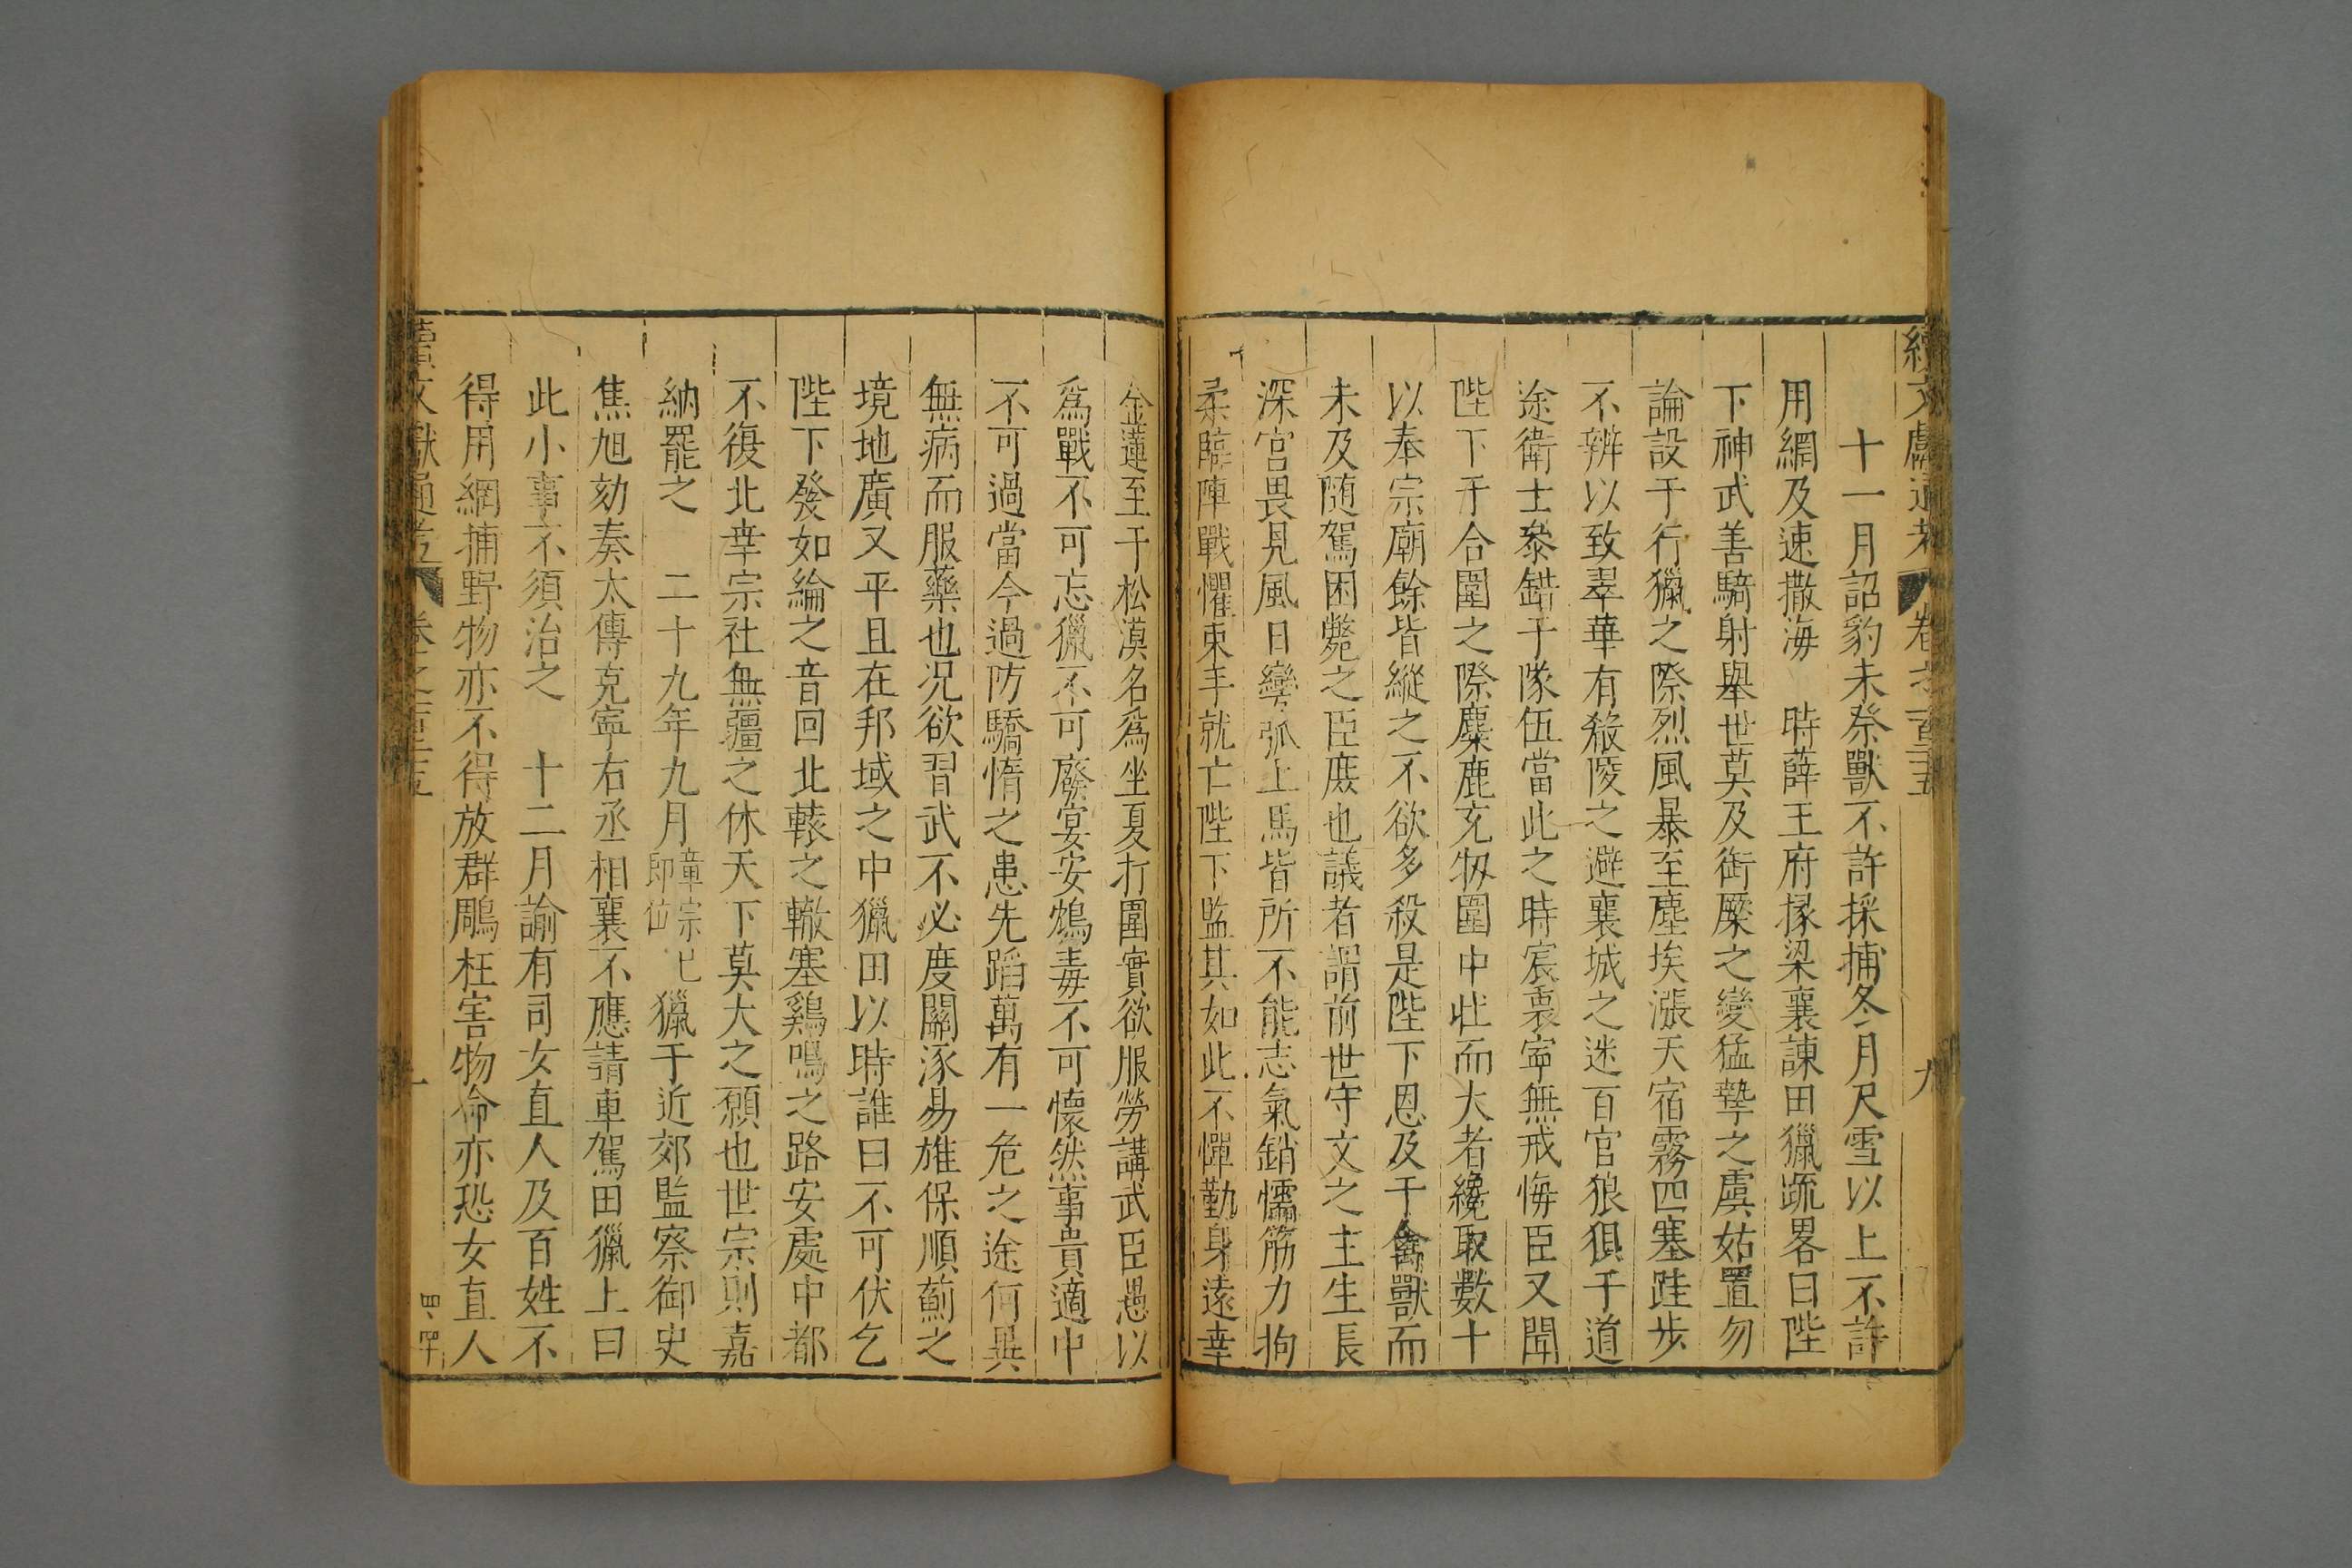 續文獻通考 卷之一百二十五 九
十一月詔豺未祭獸不許採捕冬月尺雪以上不許
用網及速撒海 時薛王府掾梁襄諫田獵疏畧曰陛
下神武善騎射舉世莫及銜橜之變猛摯之虞姑置勿
論設于行獵之際烈風暴至塵埃漲天宿霧四塞跬步
不辨以致翠華有殽陵之避襄城之迷百官狼狽于道
途衛士叅錯于隊伍當此之時宸衷寕無戒悔臣又聞
陛下于合圍之際麋鹿充牣圍中壯而大者纔取數十
以奉宗廟餘皆縱之不欲多殺是陛下恩及于禽獸而
未及随駕困斃之臣庶也議者謂前世守文之主生長
深宫畏見風日彎弧上馬皆所不能志氣銷懦筋力拘
柔臨陣戰懼束手就亡陛下監其如此不憚勤身遠幸
金蓮至于松漠名爲坐夏打圍實欲服勞講武臣愚以
爲戰不可忘獵不可廢宴安鴆毒不可懷然事貴適中
不可過當今過防驕惰之患先蹈萬有一危之途何異
無病而服藥也况欲習武不必度關涿易雄保順薊之
境地廣又平且在邦域之中獵田以時誰曰不可伏乞
陛下發如綸之音回北轅之轍塞鷄鳴之路安處中都
不復北幸宗社無疆之休天下莫大之願也世宗則嘉
納罷之 二十九年九月章宗已即位獵于近郊監察御史
焦旭劾奏太傅克寧右丞相襄不應請車駕田獵上曰
此小事不須治之 十二月諭有司女直人及百姓不
得用網捕野物亦不得放群鵰枉害物命亦恐女直人
續文獻通考 卷之一百二十五